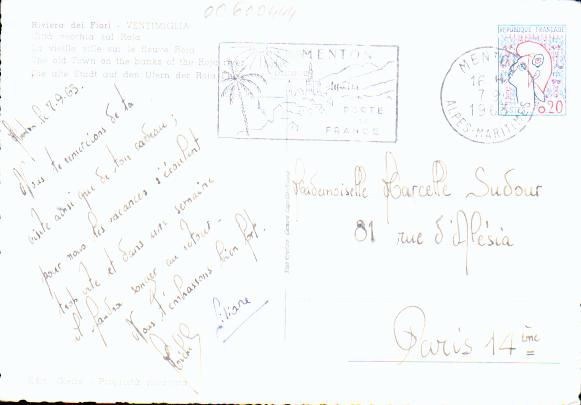 00600444
Riviera dei Fiori - VENTIMIGLIA
Città vecchia sul Roia
La vieille ville sur le fleuve Roia
The old Town on the banks of the Roja
Die alte Stadt auf den Ufern der Roia
MENTON
PERLE
DE LA
FRANCE
MENTON
16 H
7 9
1963
ALPES-MARITIMES
REPUBLIQUE FRANÇAISE
0.20
le 7.9.63.
Nous te remercions de ta
visite ainsi que de ton cadeau ;
pour nous les vacances s'écoulent
trop vite et dans une semaine
il faudra songer au retour.
Nous t'embrassons bien fort.
Liliane
Mademoiselle Marcelle Sudour
81 rue d'Alésia
Paris 14ème